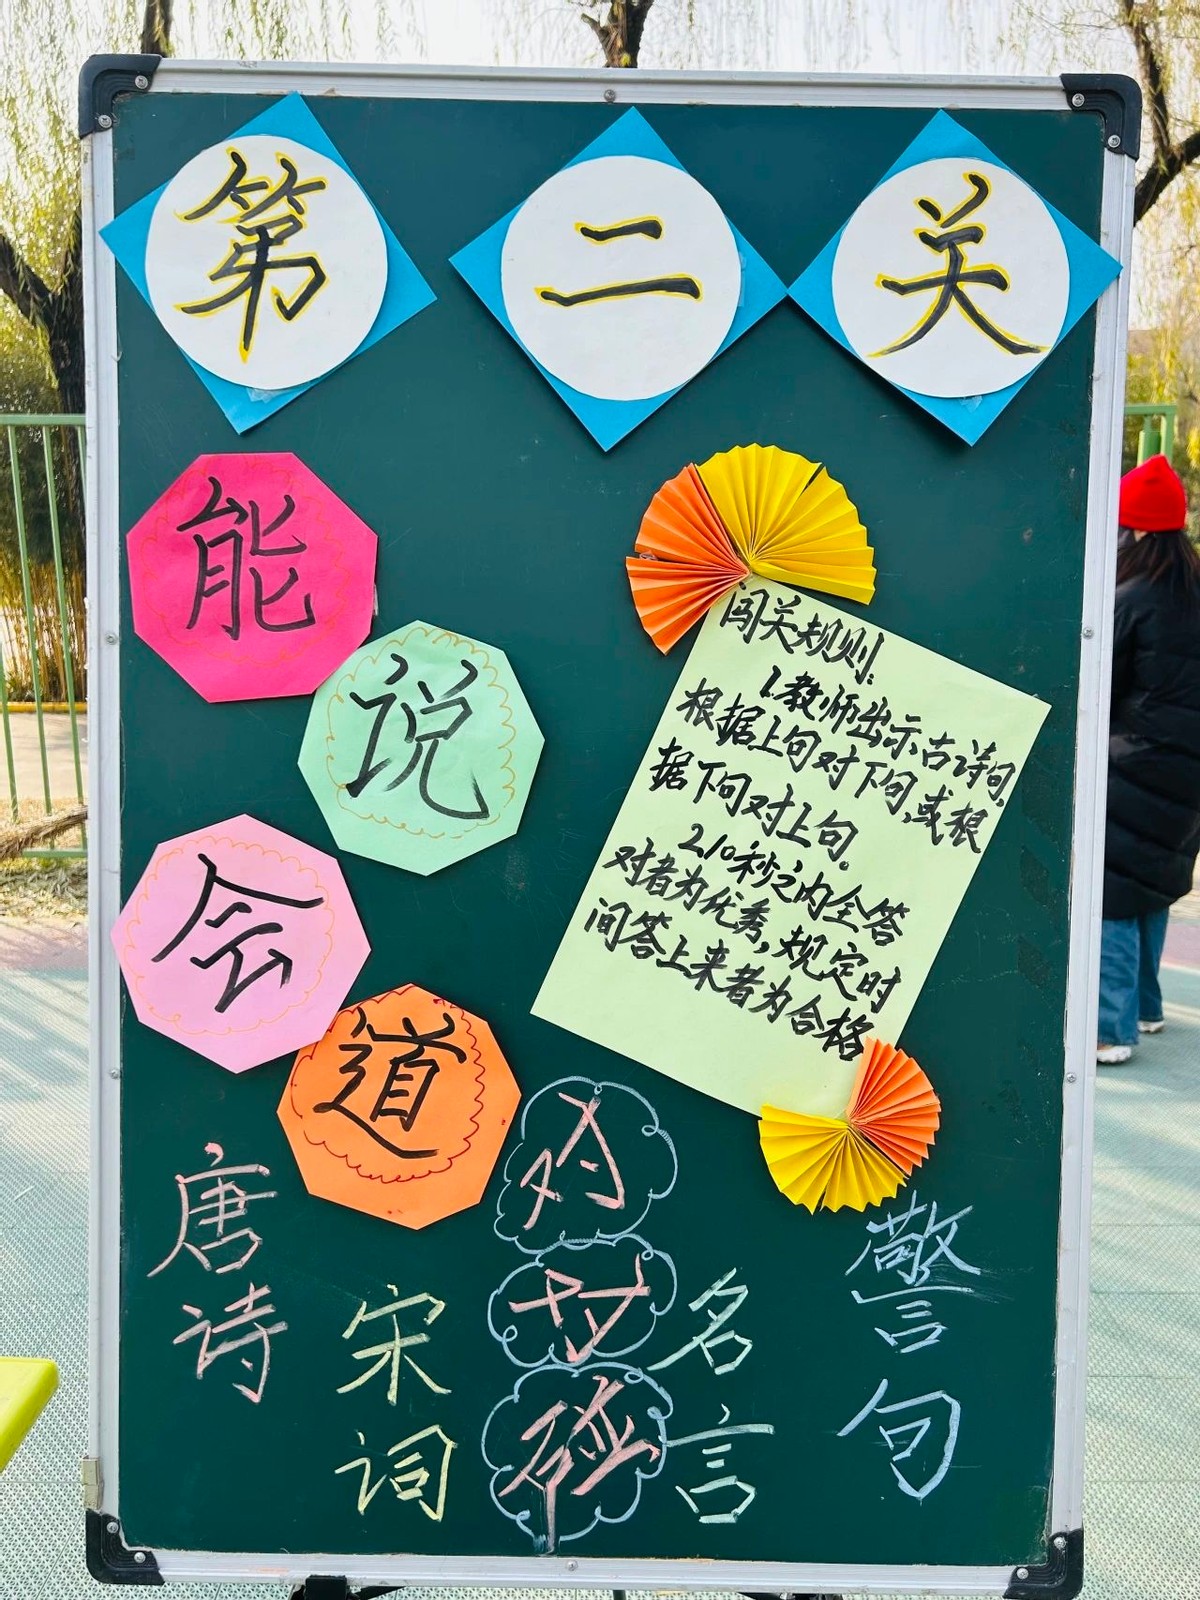 第二关
能说会道
闯关规则:
1.教师出示古诗句,
根据上句对下句,或根
据下句对上句。
2.10秒之内全答
对者为优秀,规定时
间答上来者为合格
唐诗
宋词
对对碰
名言
警句